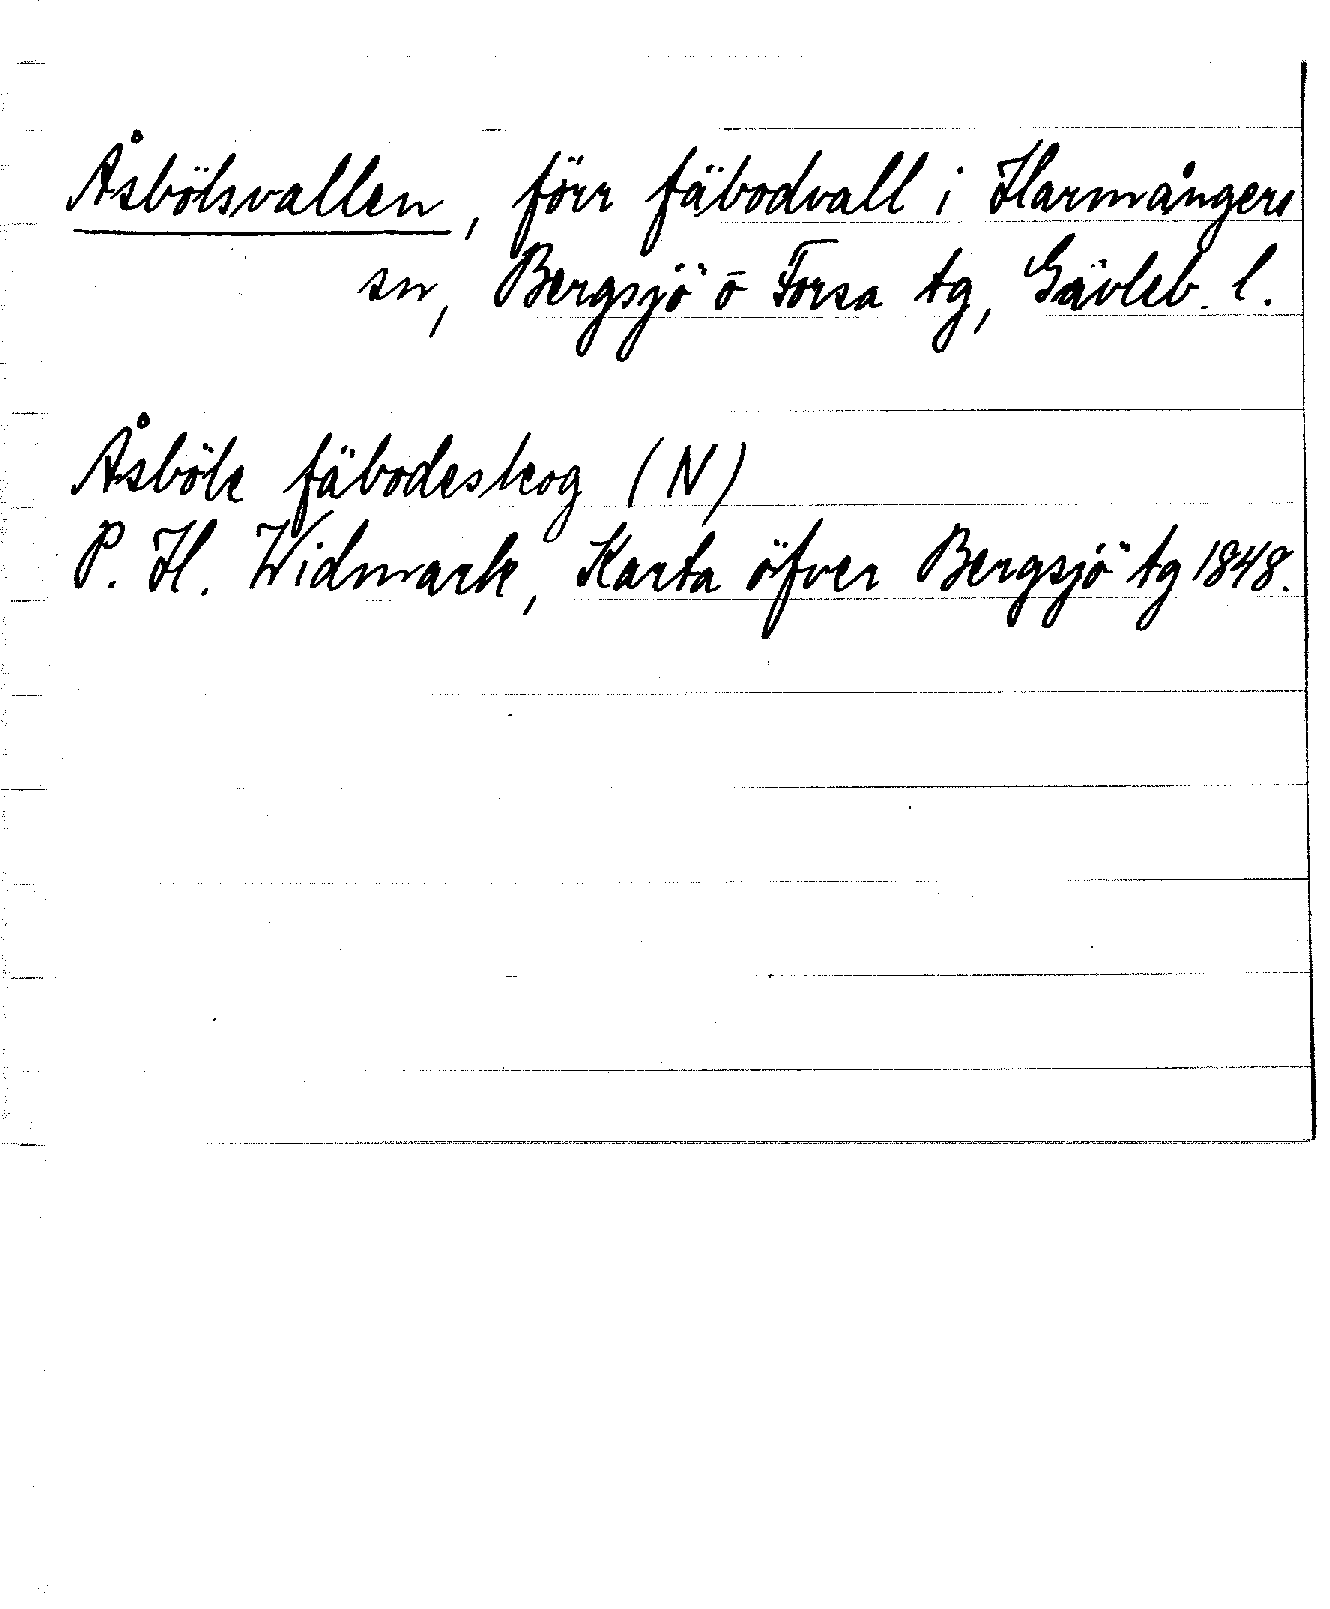 Åsbölsvallen, förr fäbodvall i Harmångers
sn, Bergsjö o Forsa tg, Gävleb. l.
Åsböle fäbodeskog (N)
P. H. Widmark, Karta öfver Bergsjö tg 1848.